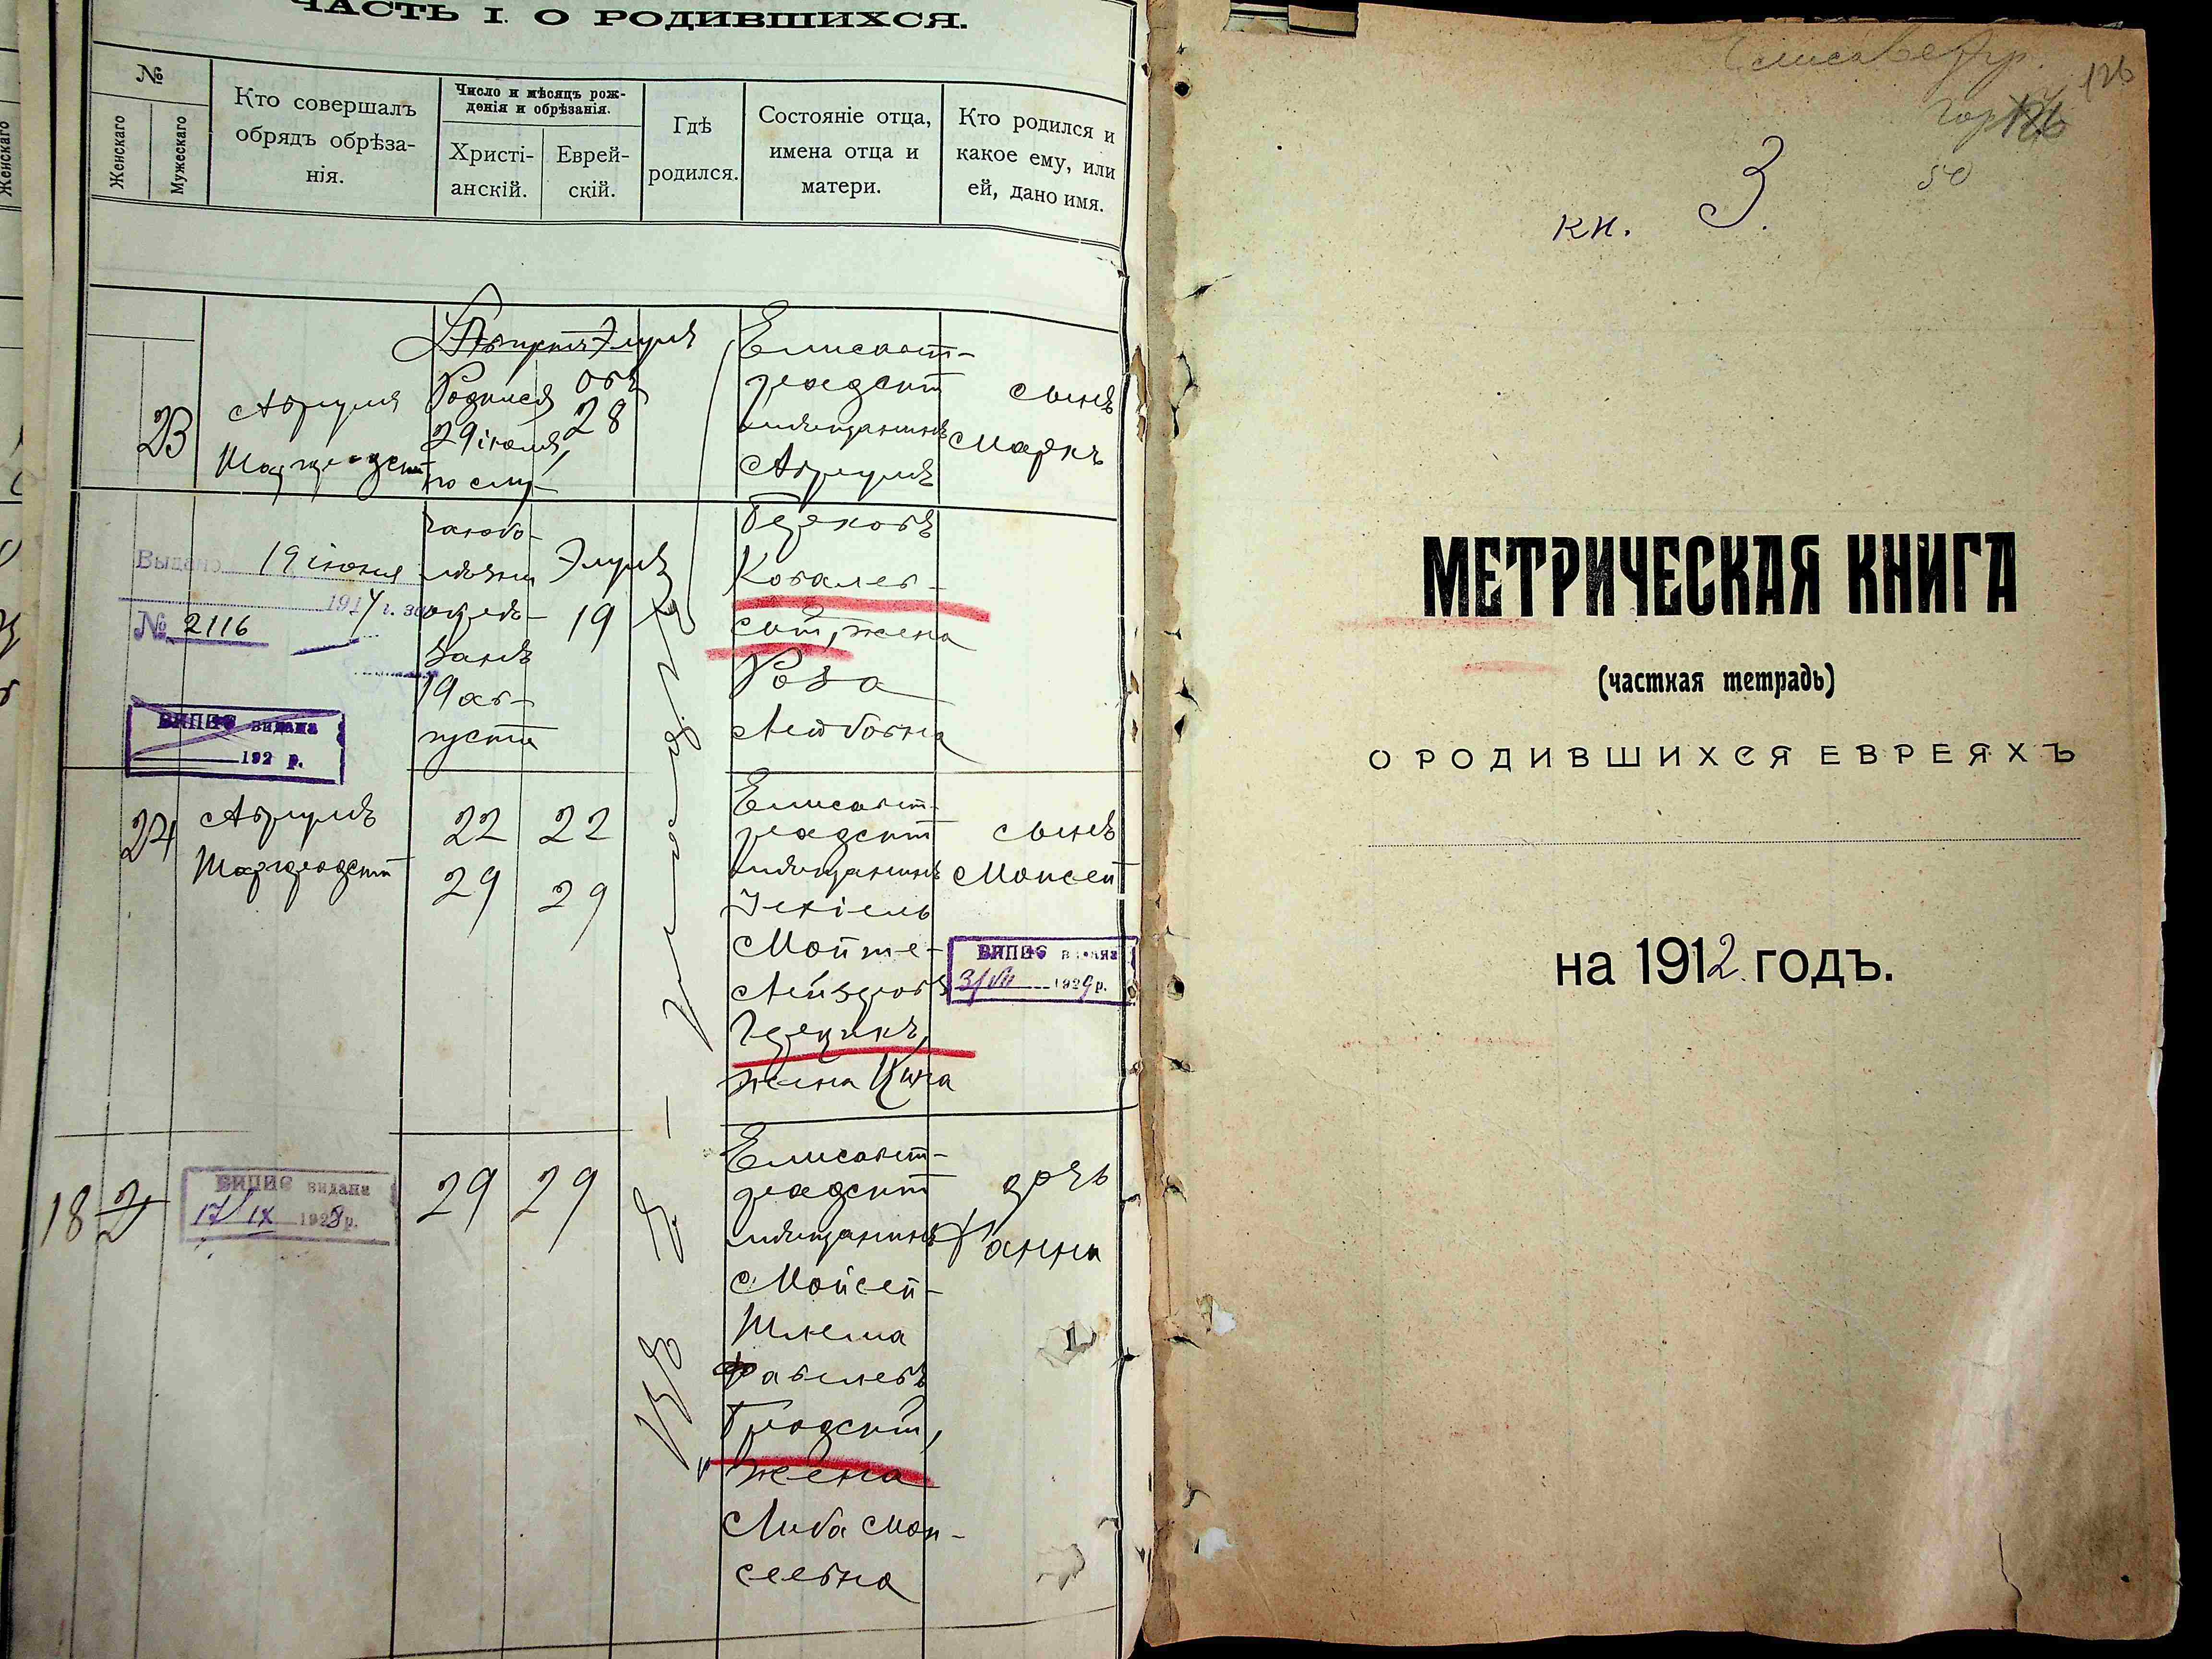 ЧАСТЬ I. О РОДИВШИХСЯ.
№
Женскаго
Мужескаго
Кто совершалъ
обрядъ обрѣза-
нія.
Число и мѣсяцъ рож-
денія и обрѣзанія.
Христі-
анскій.
Еврей-
скій.
Гдѣ
родился.
Состояніе отца,
имена отца и
матери.
Кто родился и
какое ему, или
ей, дано имя.
Женскаго
23
Абрумъ
Шаргродскій
Августъ Элулъ
Родился
29 іюля,
по слу-
чаю бо-
лѣзни
обрѣ-
занъ
19 ав-
густа
Объ
28
Элулъ
19
Елисавет-
градскій
мѣщанинъ
Абрумъ
Берковъ
Ковалев-
скій, жена
Роза
Лейбовна
сынъ
Маркъ
Выдано 19 іюня
1914 г. за
№ 2116
ВИПИС видана
192 р.
24
Абрумъ
Шаргродскій
22
29
22
29
Елисавет-
градскій
мѣщанинъ
Іехіель
Мойше-
Лейзеровъ
жена
сынъ
Моисей
ВИПИС видана
3/VII 1929 р.
18
ВИПИС видана
17/IX 1928 р.
29
29
Елисавет-
градскій
мѣщанинъ
Мойсей-
Шлема
Гродскій,
жена
Либа Мои-
сеевна
дочь
Ханна
Елисаветгр.
126
50
кн. 3.
МЕТРИЧЕСКАЯ КНИГА
(частная тетрадь)
О РОДИВШИХСЯ ЕВРЕЯХЪ
на 1912 годъ.